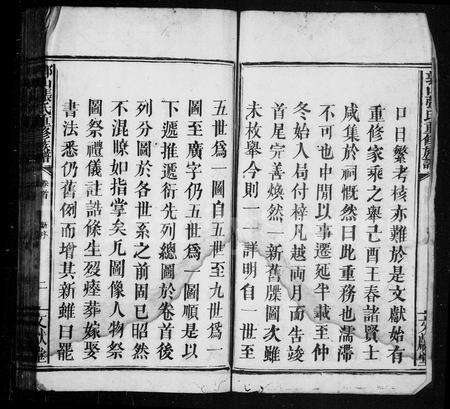 口日繁考核亦難於是文獻始有
重修家乘之舉己酉王春諸賢士
咸集於祠慨然曰此重務也濡滯
不可也中閒以事遷延半載至仲
冬始入局付梓凡越兩月而告竣
首尾完善煥然一新舊牒圖次雖
未枚舉今則一一詳明自一世至
五世爲一圖自五世至九世爲一
圖至廣字仍五世爲一圖順是以
下遞推遞衍先列總圖於卷首後
列分圖於各世系之前固已昭然
不混瞭如指掌矣凢圖像人物祭
圖祭禮儀註誥條生歿瘞葬嫁娶
書法悉仍舊例而增其新雖曰罷
張氏重修族譜
卷首
二